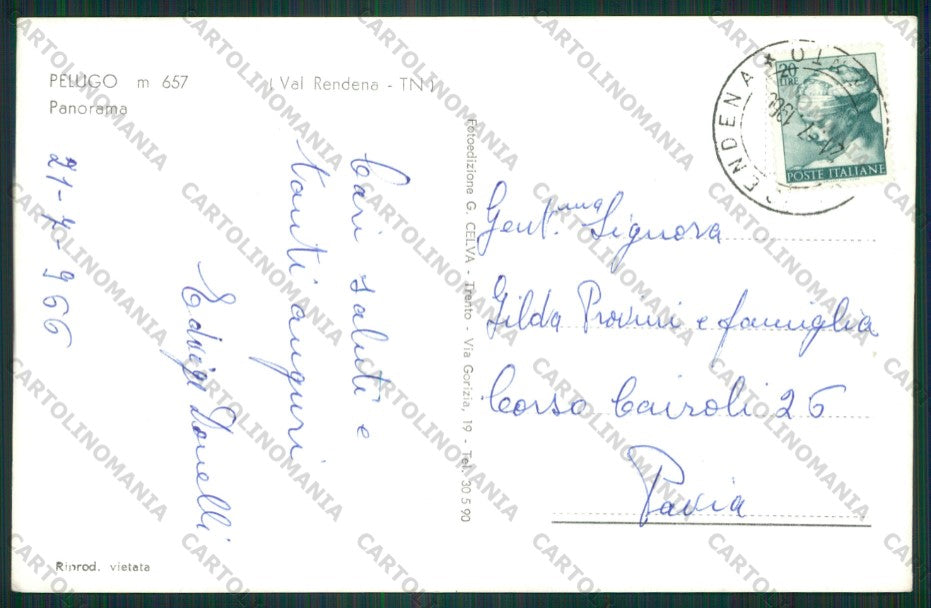 PELUGO m 657 (Val Rendena - TN)
Panorama
21-7-966
Cari saluti e
tanti auguri
Edvige Donelli
Riprod. vietata
Fotoedizione G. CELVA - Trento - Via Gorizia, 19 - Tel. 30 5 90
20
LIRE
POSTE ITALIANE
ENDENA
7 196
Gent.ma Signora
Gilda Provini e famiglia
Corso Cairoli 26
Pavia
CARTOLINOMANIA